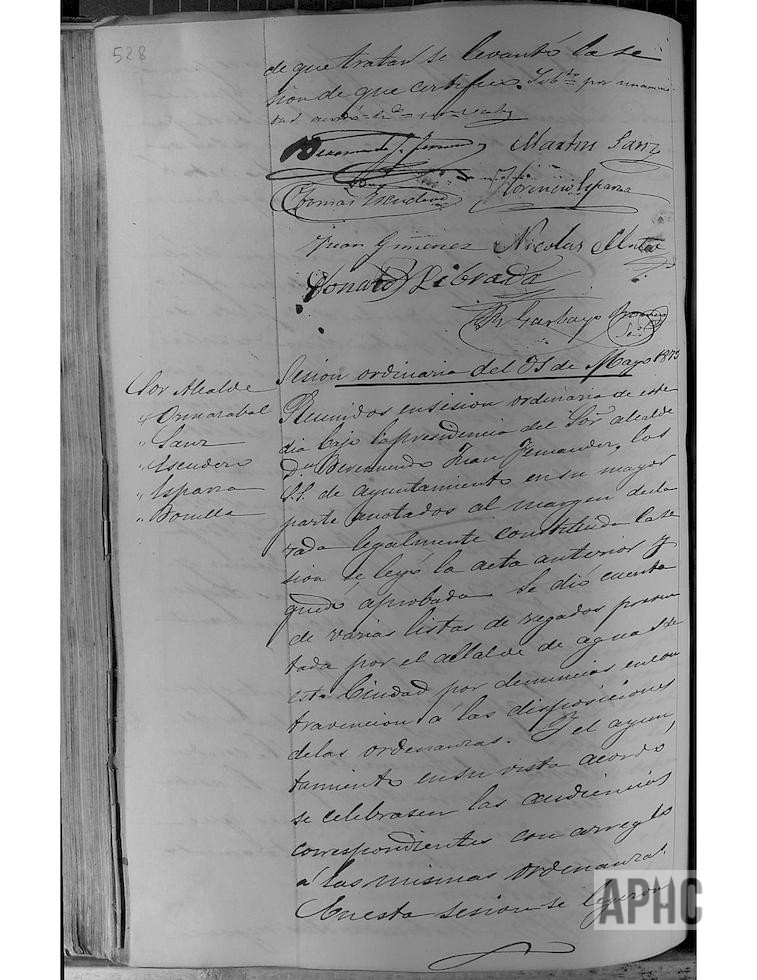 528
de que tratar se levantó la se
sion de que certifico. por unanimi
dad
Martin Sanz
Tomas Escudero Florencio Esparza
Juan Gimenez Nicolas
Donato Librada
R. Garbayo
Sesion ordinaria del 31 de Mayo 1873
Sor Alcalde
" Ormazabal
" Sanz
" Escudero
" Esparza
" Bonilla
Reunidos en sesion ordinaria de este
dia bajo la presidencia del Sor alcalde
Dn Beremundo Juan Fernandez, los
S.S. de ayuntamiento en su mayor
parte anotados al margen decla
rada legalmente constituida la se
sion se leyó la acta anterior y
quedó aprobada. Se dió cuenta
de varias listas de regados presen
tada por el alcalde de aguas de
esta Ciudad por denuncias en con
travencion á las disposiciones
de las ordenanzas. Y el ayun
tamiento en su vista acordó
se celebrasen las audiencias
correspondientes con arreglo
á las mismas ordenanzas.
En esta sesion se leyeron
APHC